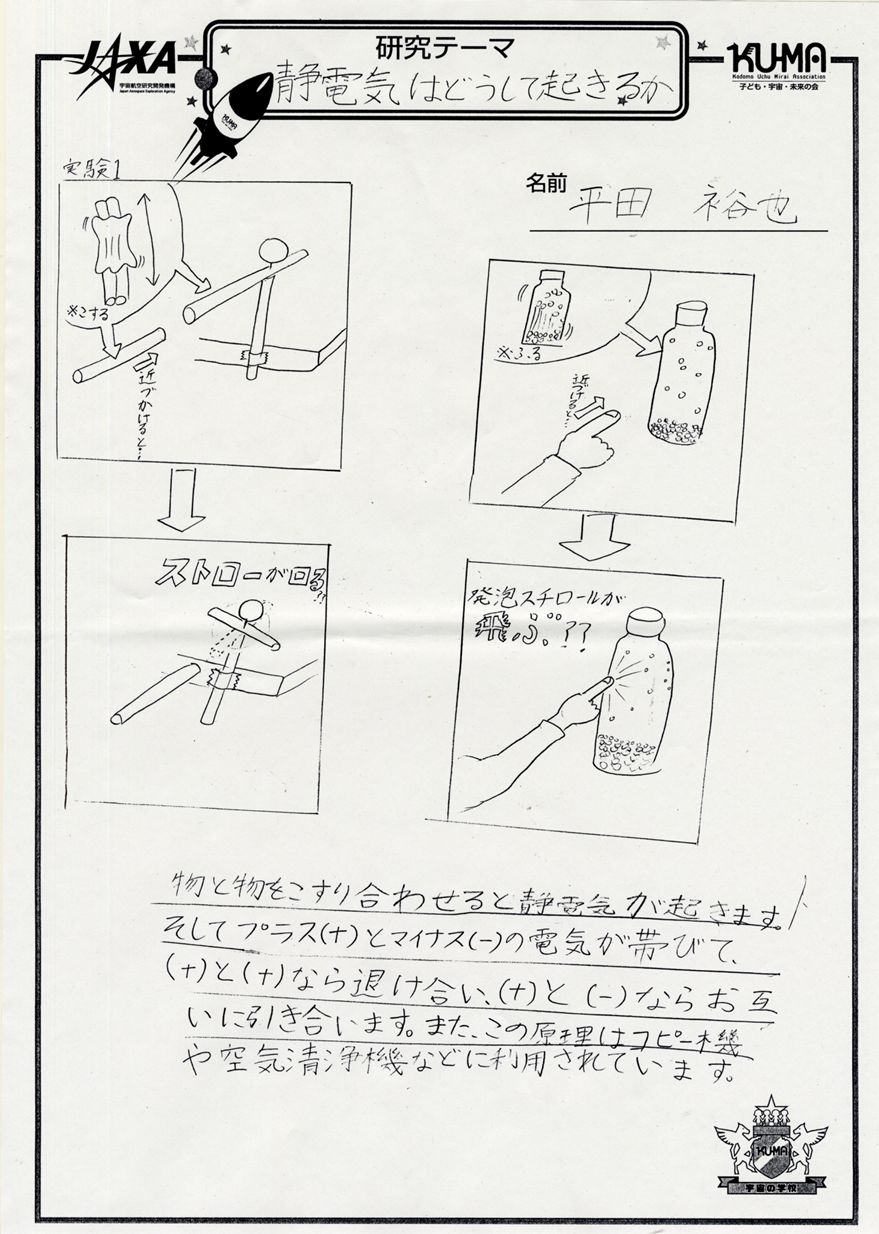 JAXA
宇宙航空研究開発機構
Japan Aerospace Exploration Agency
研究テーマ
静電気はどうして起きるか
KU-MA
Kodomo Uchu Mirai Association
子ども・宇宙・未来の会
KU-MA
名前 平田 裕也
実験1
※こする
近づかけると…
ストローが回る!!
※ふる
近づけると…
発泡スチロールが
飛ぶ??
物と物をこすり合わせると静電気が起きます。
そしてプラス(+)とマイナス(-)の電気が帯びて、
(+)と(+)なら退け合い、(+)と(-)ならお互
いに引き合います。また、この原理はコピー機
や空気清浄機などに利用されています。
KU-MA
宇宙の学校